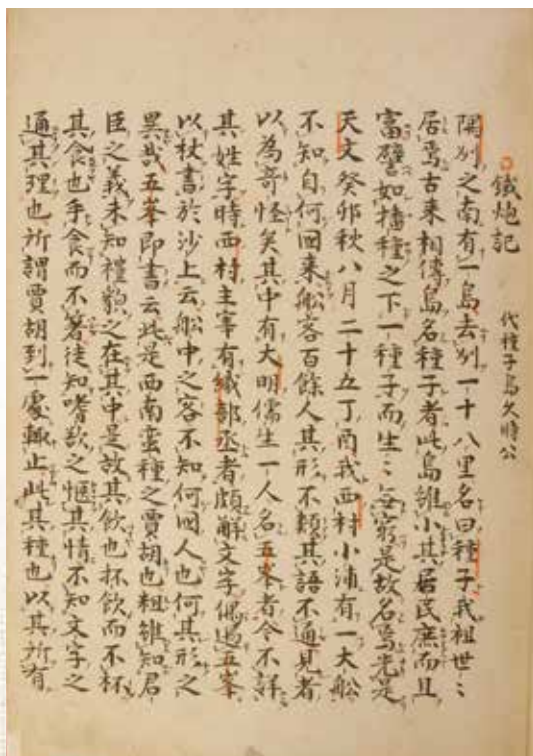 鐵炮記 代種子島久時公
隅州之南有一島去州一十八里名曰種子我祖世〻
居焉古来相傳島名種子者此島雖小其居民庶而且
富譬如播種之下一種子而生〻無窮是故名焉先是
天文癸卯秋八月二十五丁酉我西村小浦有一大舩
不知自何國来舩客百餘人其形不類其語不通見者
以為奇怪矣其中有大明儒生一人名五峯者今不詳
其姓字時西村主宰有織部丞者頗解文字偶遇五峯
以杖書於沙上云舩中之客不知何國人也何其形之
異哉五峯即書云此是西南蛮種之賈胡也粗雖知君
臣之義未知禮貌之在其中是故其飲也抔飲而不杯
其食也手食而不箸徒知嗜欲之愜其情不知文字之
通其理也所謂賈胡到一處輒止此其種也以其所有